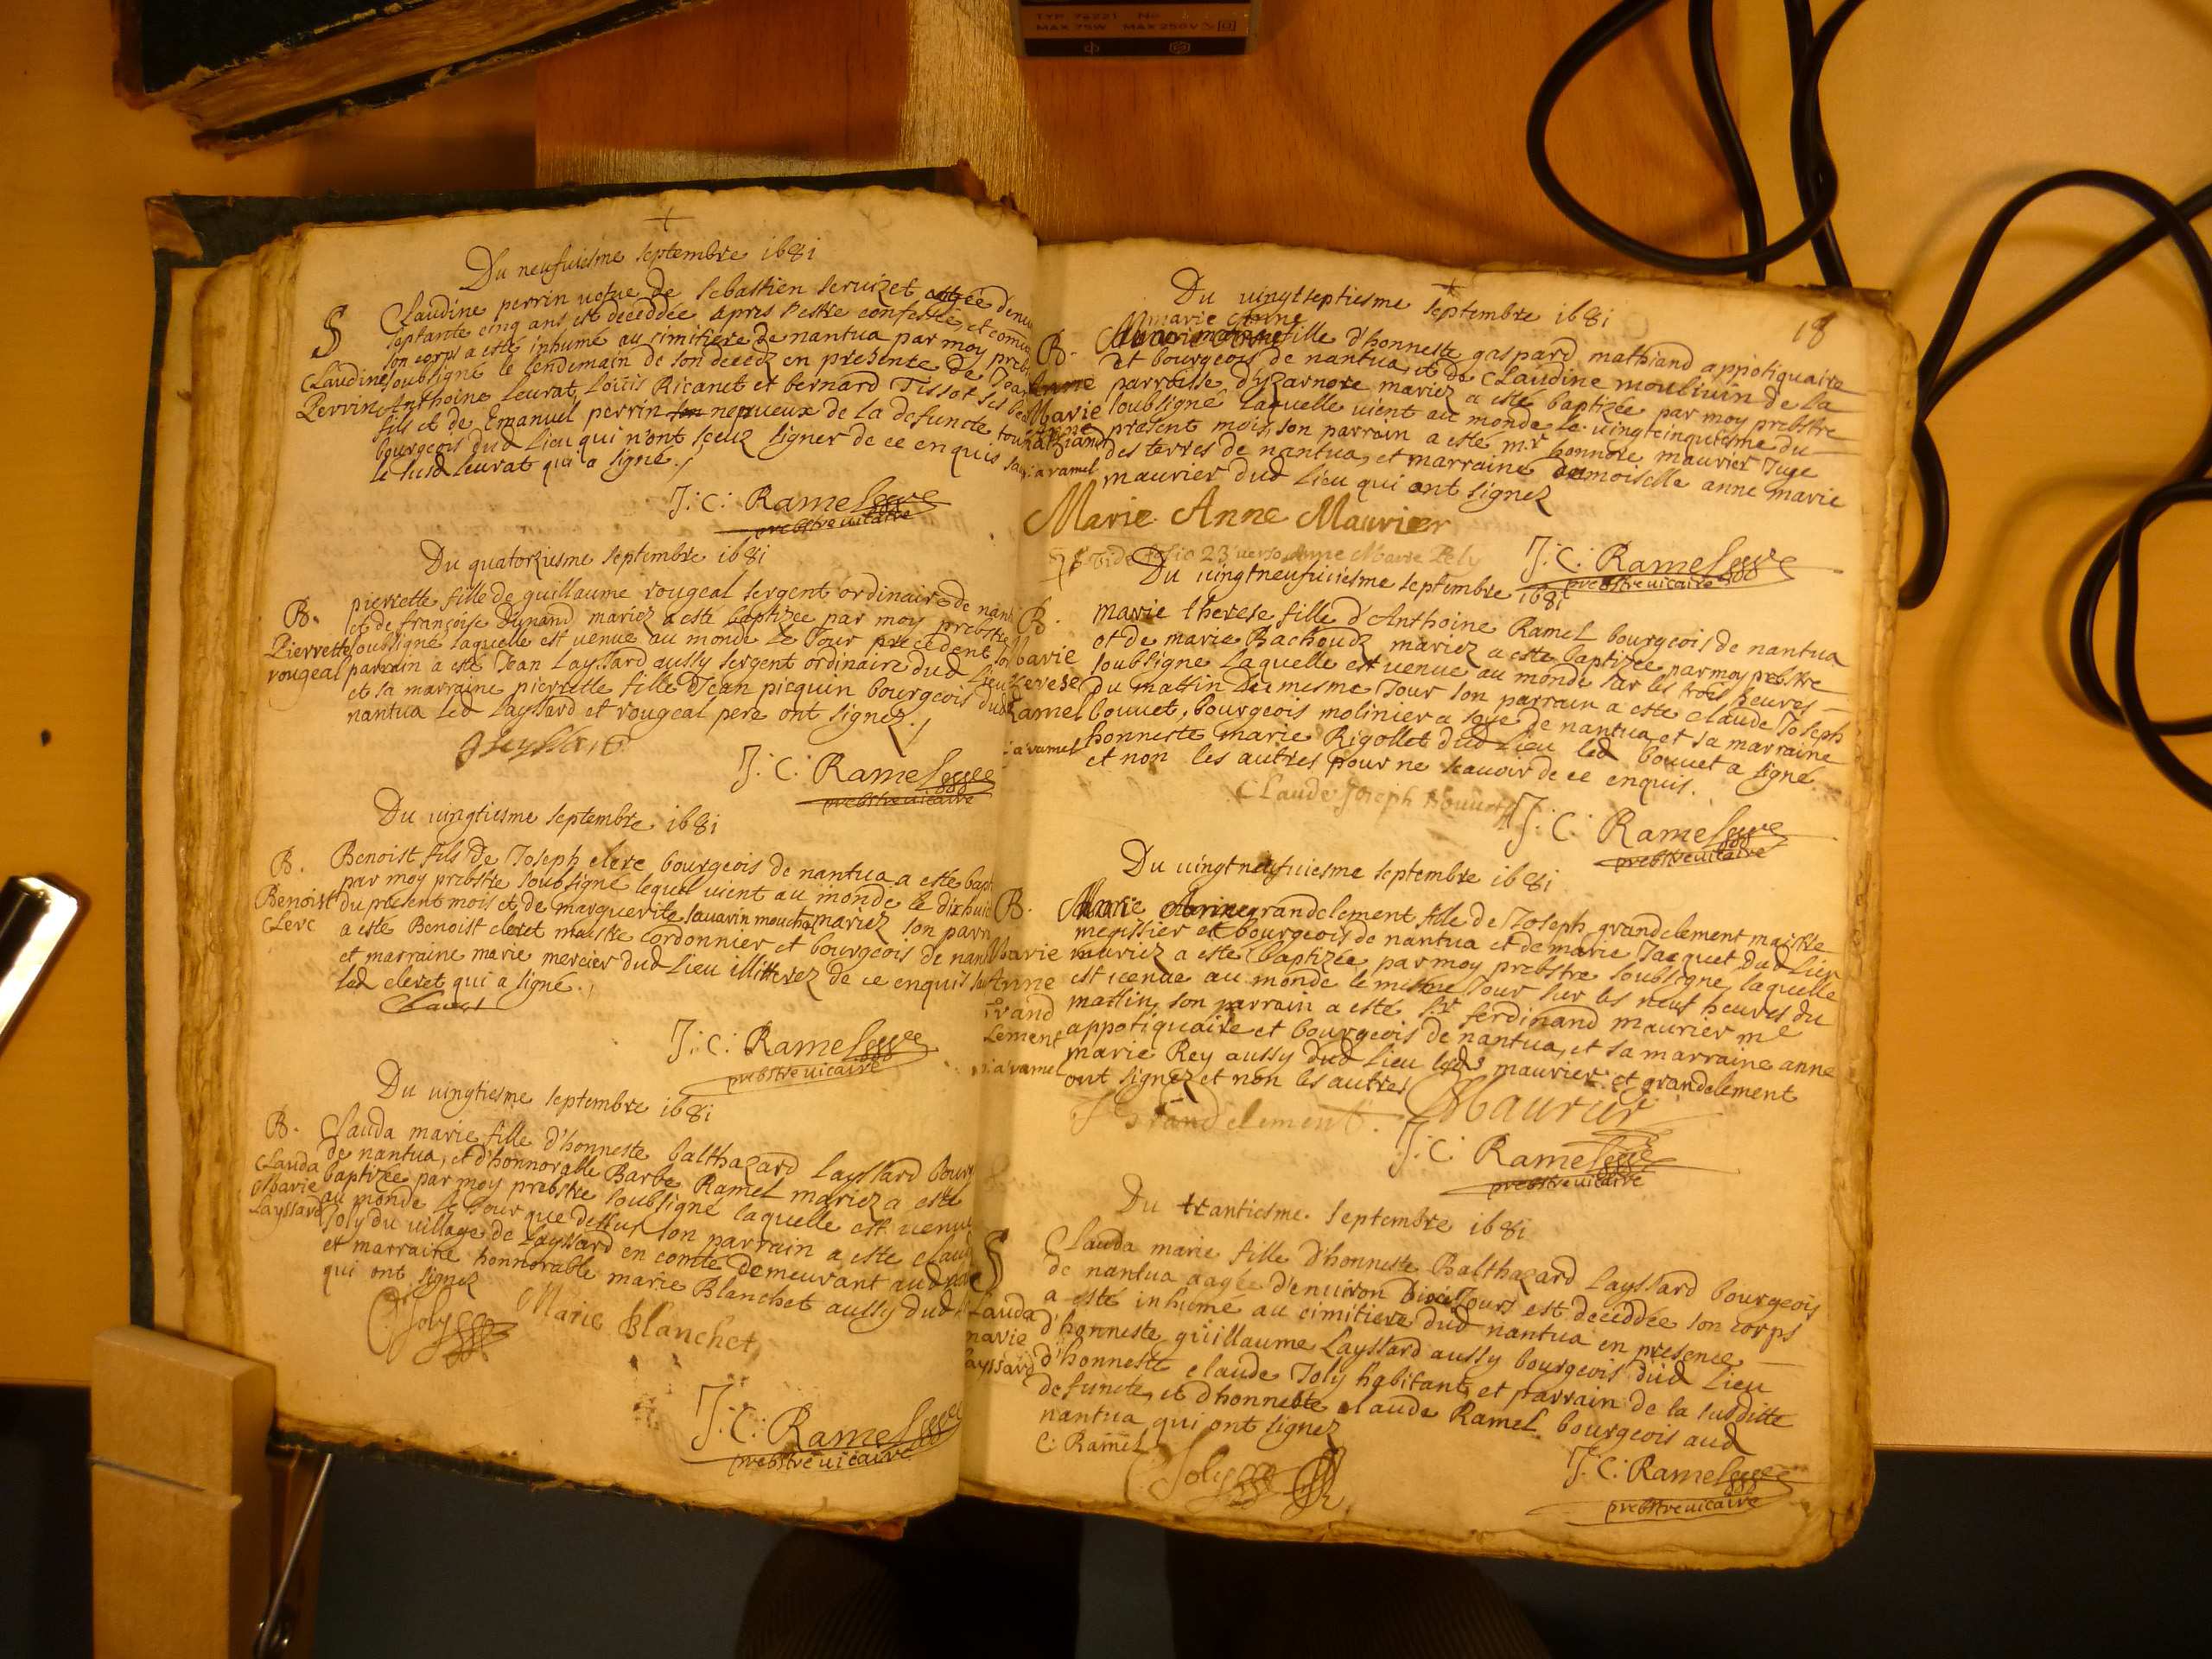 TYP 74221 No
MAX 75W MAX 250V
Du neufuiesme septembre 1681
S
Claudine perrin vefue de sebastien seruizet
septante cinq ans est deceddée apres s'estre confessée, et
son corps a esté inhumé au simitiere de nantua par moy
Claudine soubsigné le lendemain de son decedz en presente de
Perrin Anthoine leurat, Loüis Ricanet et bernard Tissot ses
fils et de Emanuel perrin son nepueux de la defuncte
bourgeois dud lieu qui n'ont sceuz signer de ce enquis
le susd leurat qui a signé.
J: C: Ramel
prebstre uicaire
Du quatorziesme septembre 1681
B.
pierrette fille de guillaume rougeal sergent ordinaire de
et de françoise Dunand mariez a esté baptizée par moy prebstre
Pierrette soubsigné laquelle est venue au monde le Jour precedent
rougeal parrain a esté Jean Layssard aussy sergent ordinaire dud lieu
et sa marraine pierrette fille D'Jean picquin bourgeois dud
nantua led Layssard et rougeal pere ont signez.
J: C: Ramel
prebstre uicaire
Du uingtiesme septembre 1681
B.
Benoist fils de Joseph clerc bourgeois de nantua a esté
par moy prebstre soubsigné lequel vient au monde le
Benoist du present mois et de marguerite sauarin mariez son
Clerc
a esté Benoist cleret maistre cordonnier et bourgeois de
et marraine marie mercier dud lieu illitterez de ce enquis
led cleret qui a signé.
J: C: Ramel
prebstre uicaire
Du uingtiesme septembre 1681
B.
Clauda marie fille d'honneste balthazard Layssard
Clauda de nantua, et d'honnorable Barbe Ramel mariez a esté
Marie baptizée par moy prebstre soubsigné laquelle est venue
Layssard au monde le Jour que dessus son parrain a esté
Joly du village de Layssard en comté demeurant aud
et marraine honnorable marie Blanchet aussy dud
qui ont signez
C Joly Marie Blanchet
J: C: Ramel
prebstre uicaire
18
Du uingtseptiesme septembre 1681
marie Anne
B. fille d'honneste gaspard mathiand appotiquaire
et bourgeois de nantua, et de Claudine mouliuin de la
parroisse d'yzarnore mariez a esté baptizée par moy prebstre
Marie soubsigné laquelle vient au monde le uingtcinquiesme du
Anne present mois, son parrain a esté mr honnore maurier Juge
des terres de nantua, et marraine demoiselle anne marie
maurier dud lieu qui ont signez
Marie Anne Maurier
folio 23 verso Anne Marie
J: C: Ramel
prebstre uicaire
Du uingtneufuiesme septembre 1681
B.
marie therese fille d'Anthoine Ramel bourgeois de nantua
et de marie Bachoudz mariez a esté baptizée par moy prebstre
Marie soubsigne laquelle est venue au monde sur les trois heures
du mattin de mesme Jour son parrain a esté claude Joseph
Ramel bouuet, bourgeois molinier a soye de nantua et sa marraine
honneste marie Rigollet dud lieu led bouuet a signé
et non les autres pour ne scauoir de ce enquis.
Claude Joseph Bouuet
J: C: Ramel
prebstre uicaire
Du uingtneufuiesme septembre 1681
B.
Marie Anne grandclement fille de Joseph grandclement maistre
megissier et bourgeois de nantua et de marie Jacquet dud lieu
Marie mariez a esté baptizée par moy prebstre soubsigné, laquelle
Anne est venue au monde le mesme Jour sur les neuf heures du
grand mattin, son parrain a esté Sr ferdinand maurier me
clement appotiquaire et bourgeois de nantua, et sa marraine anne
marie Rey aussy dud lieu maurier et grandclement
ont signéz et non les autres
Grandclement. Maurier
J: C: Ramel
prebstre uicaire
Du trantiesme septembre 1681
S
Clauda marie fille d'honneste Balthazard Layssard bourgeois
de nantua aagée d'enuiron Dix Jours est deceddée son corps
a esté inhumé au cimitiere dud nantua en presence
Clauda d'honneste guillaume Layssard aussy bourgeois dud lieu
marie d'honneste claude Joly habitant, et parrain de la susditte
Layssard defuncte, et d'honneste claude Ramel bourgeois aud
nantua qui ont signez
C: Ramel
C Joly
J: C: Ramel
prebstre uicaire